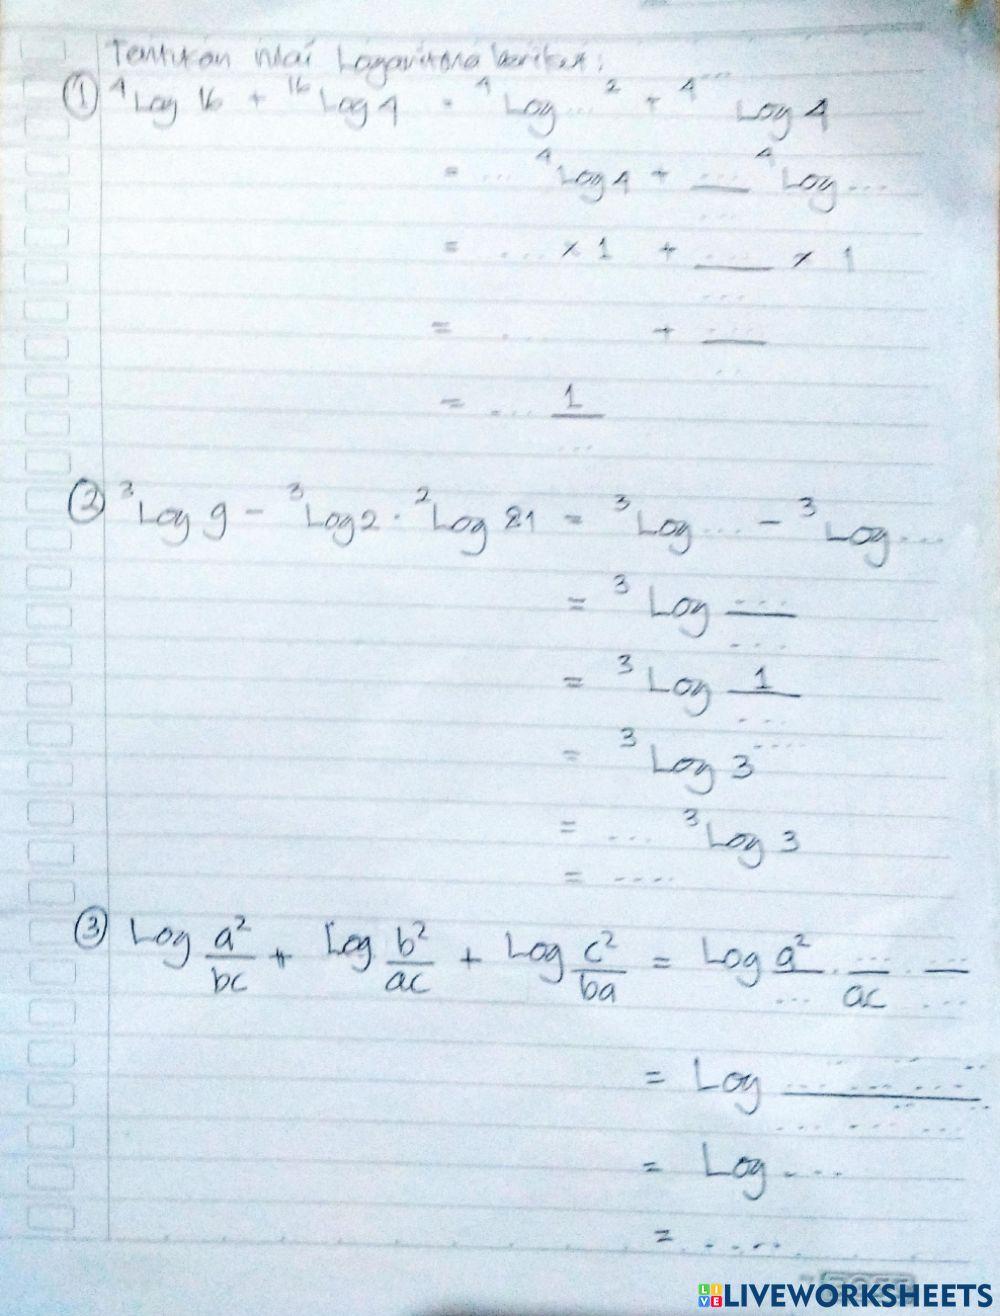 Tentukan nilai Logaritma berikut :
① ⁴Log 16 + ¹⁶Log 4 = ⁴Log ...² + ⁴ ... Log 4
= ... ⁴Log 4 + .../... ⁴Log ...
= ... × 1 + .../... × 1
= ... + .../...
= ... 1/...
② ³Log 9 - ³Log 2 . ²Log 81 = ³Log ... - ³Log ...
= ³Log .../...
= ³Log 1/...
= ³Log 3 ....
= ... ³Log 3
= ....
③ Log a²/bc + Log b²/ac + Log c²/ba = Log a²/... . .../ac . .../...
= Log ... ... .../... ... ...
= Log ...
= .....
LIVEWORKSHEETS